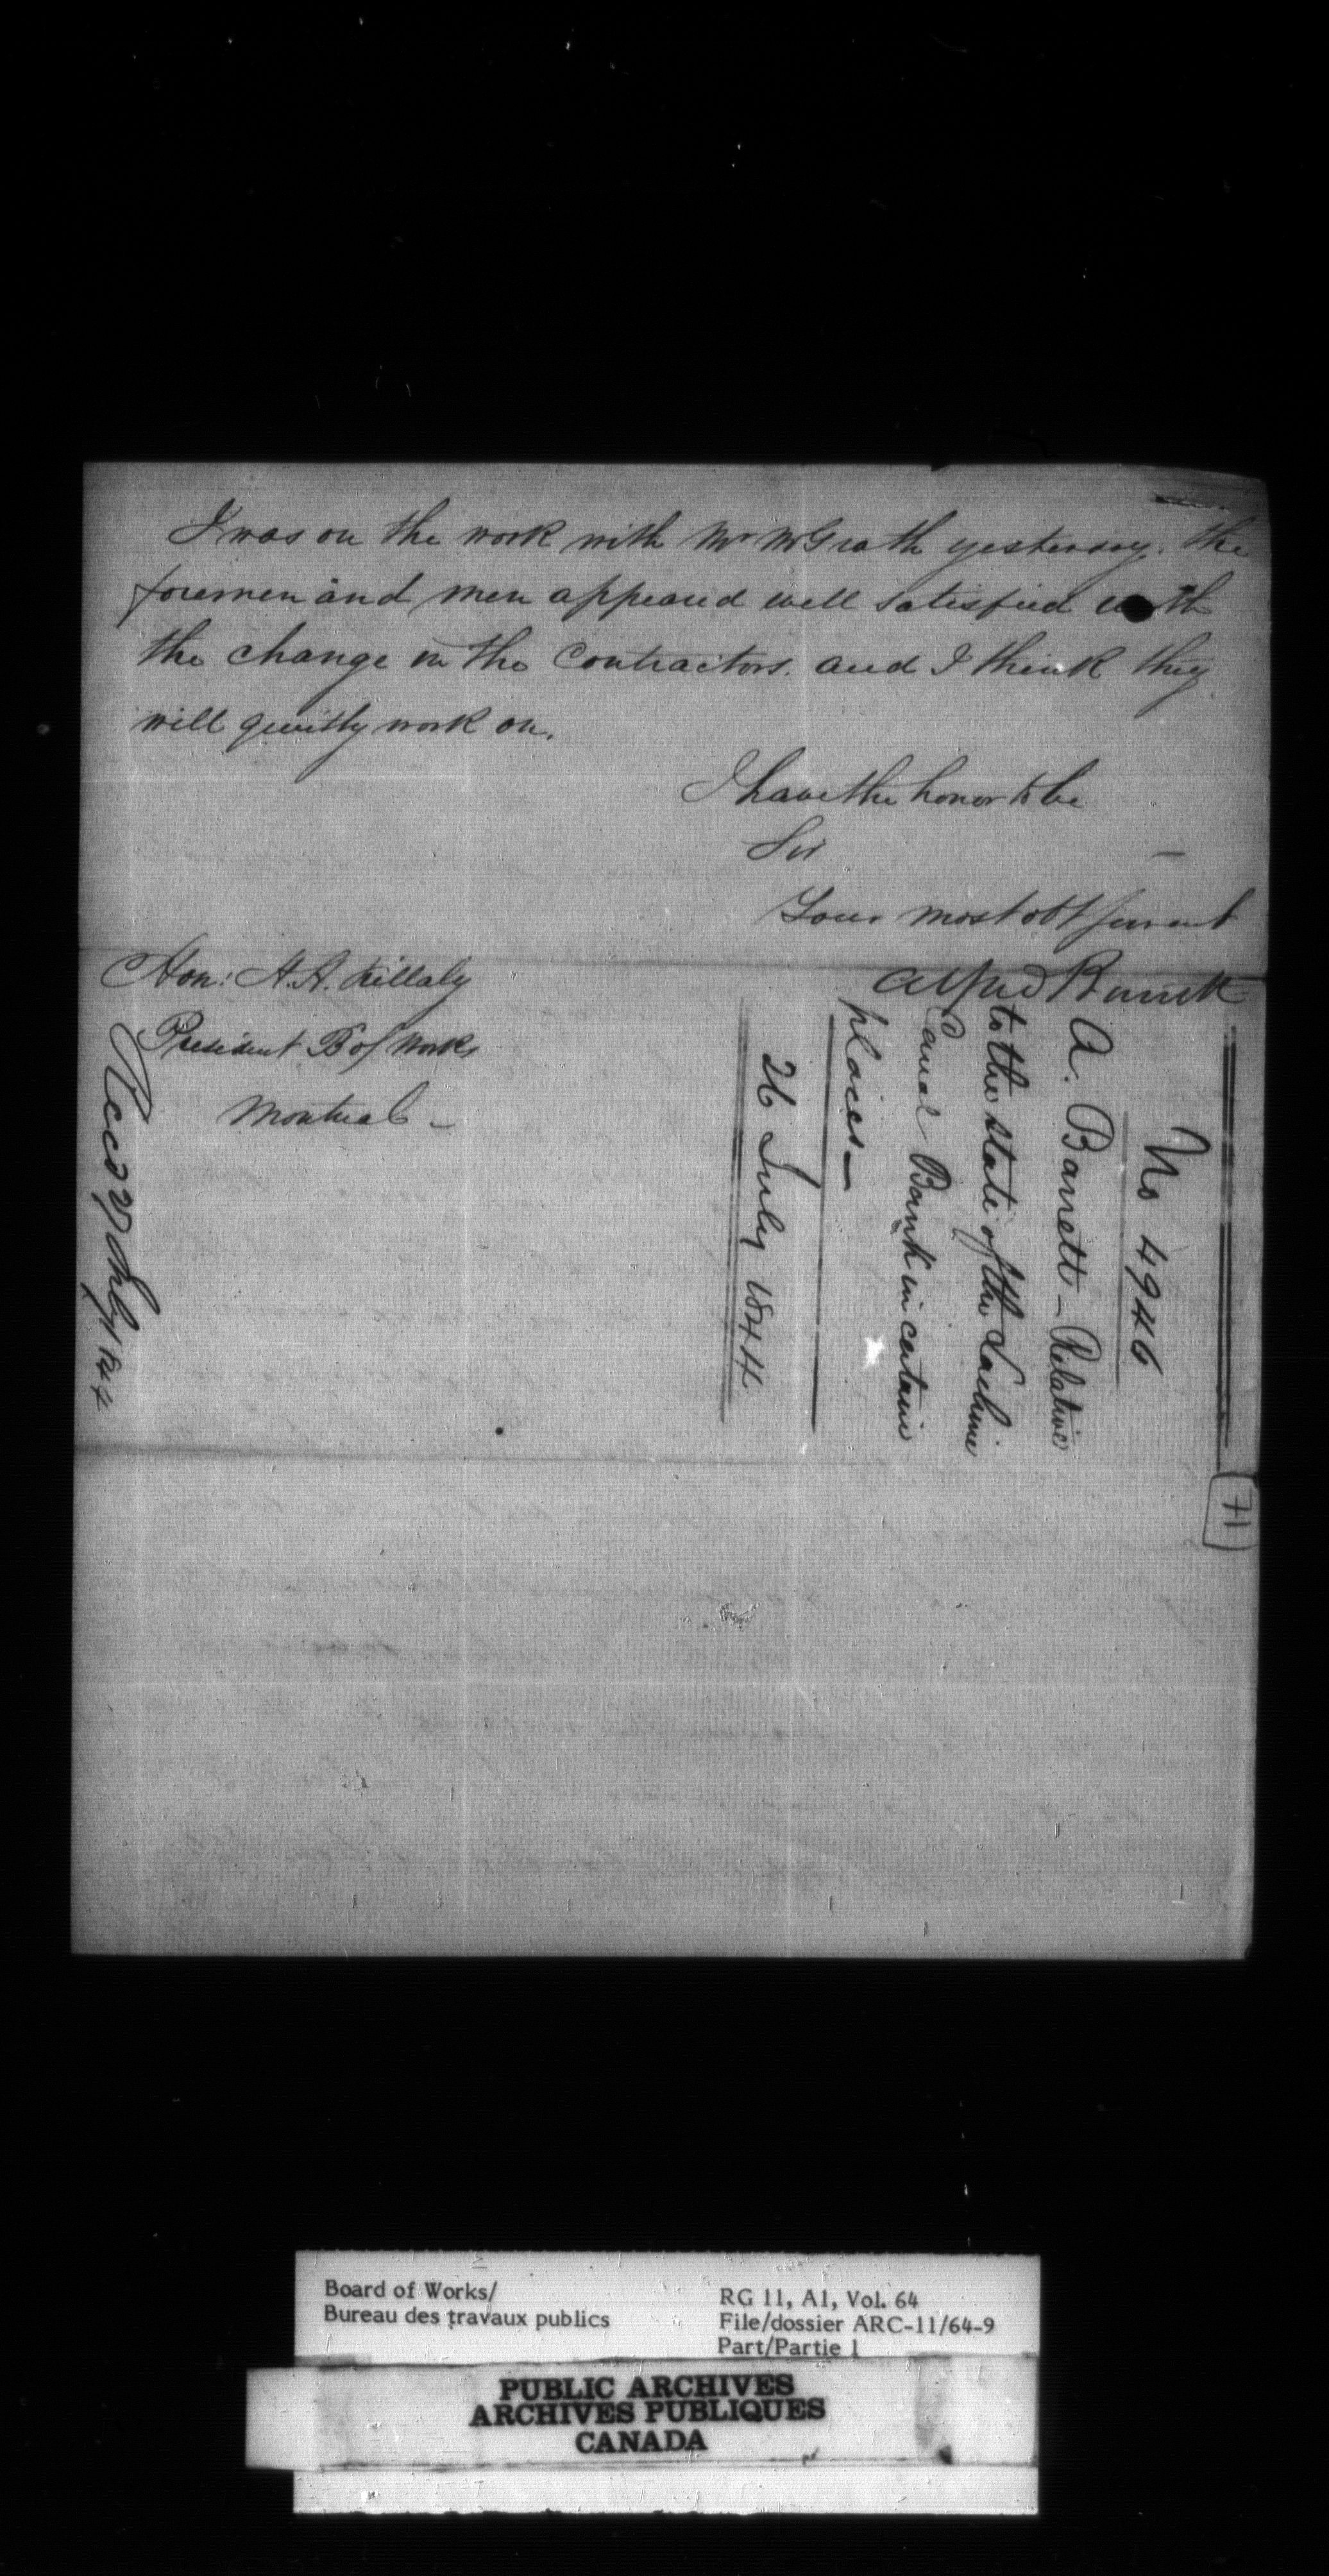 I was on the work with Mr McGrath yesterday. the
foremen and men appeared well satisfied with
the change in the Contractors. and I think they
will quietly work on.
I have the honor to be
Sir
Your most obt servant
Alfred Barrett
Hon: H.H. Killaly
President B of Works
Montreal -
No 4946
A. Barrett - Relative
to the state of the Lachine
Canal Bank in certain
places -
26 July 1844
Recd 27 July 1844
71
Board of Works/
Bureau des travaux publics
RG 11, A1, Vol. 64
File/dossier ARC-11/64-9
Part/Partie 1
PUBLIC ARCHIVES
ARCHIVES PUBLIQUES
CANADA